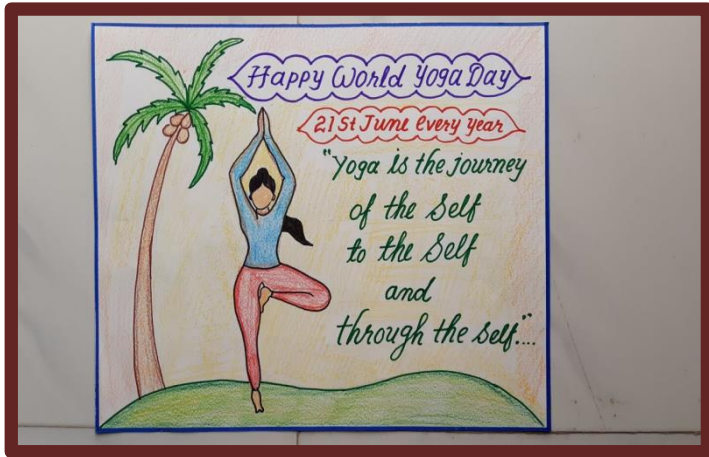 Happy World Yoga Day
21St June Every year
"Yoga is the journey
of the Self
to the Self
and
through the self."....